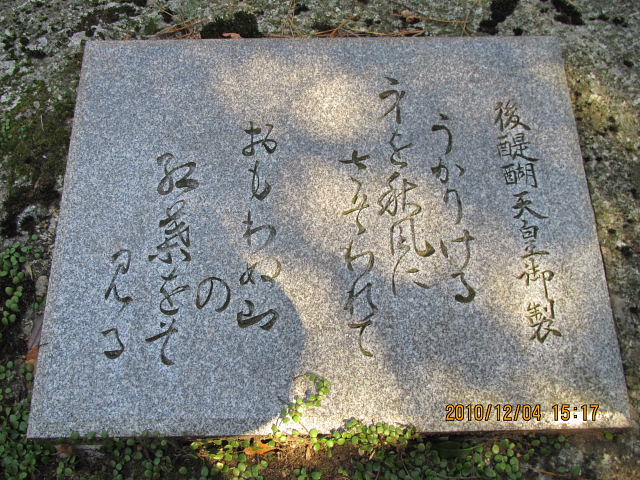 後醍醐天皇御製
うかりける
身を秋風に
さそわれて
おもわぬ山
の
紅葉をそ
見る
2010/12/04 15:17